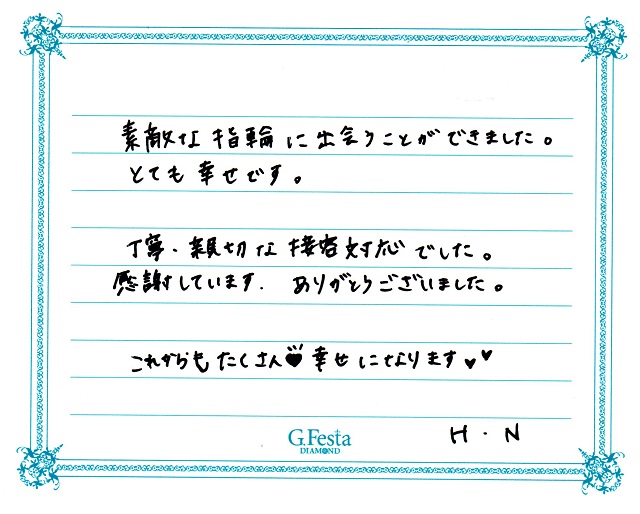 素敵な指輪に出会うことができました。
とても幸せです。
丁寧・親切な接客対応でした。
感謝しています. ありがとうございました。
これからもたくさん♥幸せになります♥♥
H・N
G.Festa
DIAMOND